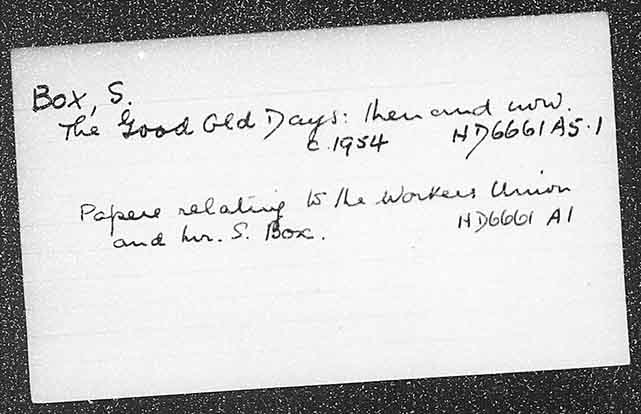 Box, S.
The Good Old Days: then and now.
c.1954 HD6661 A5.1
Papers relating to the Workers Union
and Mr. S. Box. HD6661 A1